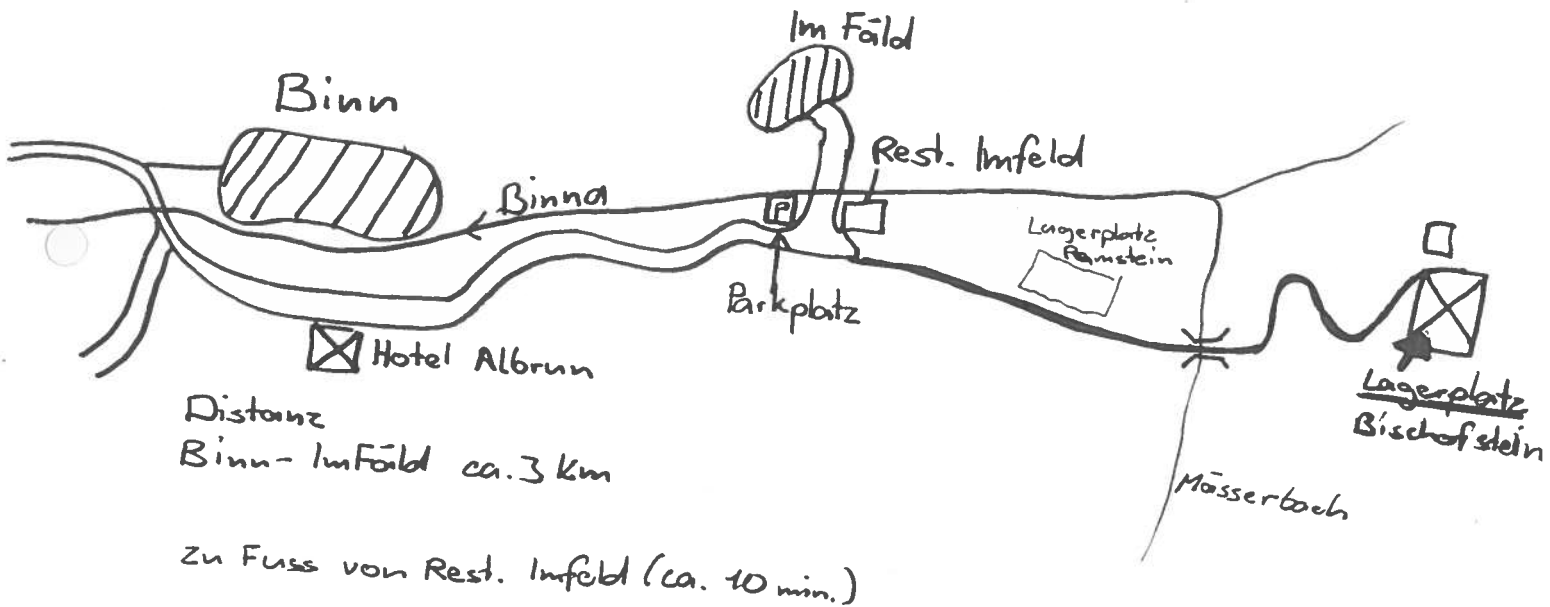 Im Fäld
Binn
Rest. Imfeld
Binna
P
Lagerplatz
Ramstein
Parkplatz
Hotel Albrun
Lagerplatz
Bischofstein
Distanz
Binn-ImFäld ca. 3 km
Mässerbach
zu Fuss von Rest. Imfeld (ca. 10 min.)